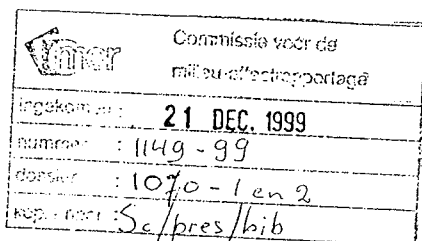 mer
Commissie voor de
milieu-effectrapportage
ingekomen : 21 DEC. 1999
nummer : 1149-99
dossier : 1070-1 en 2
kop. naar : Sc/pres/bib